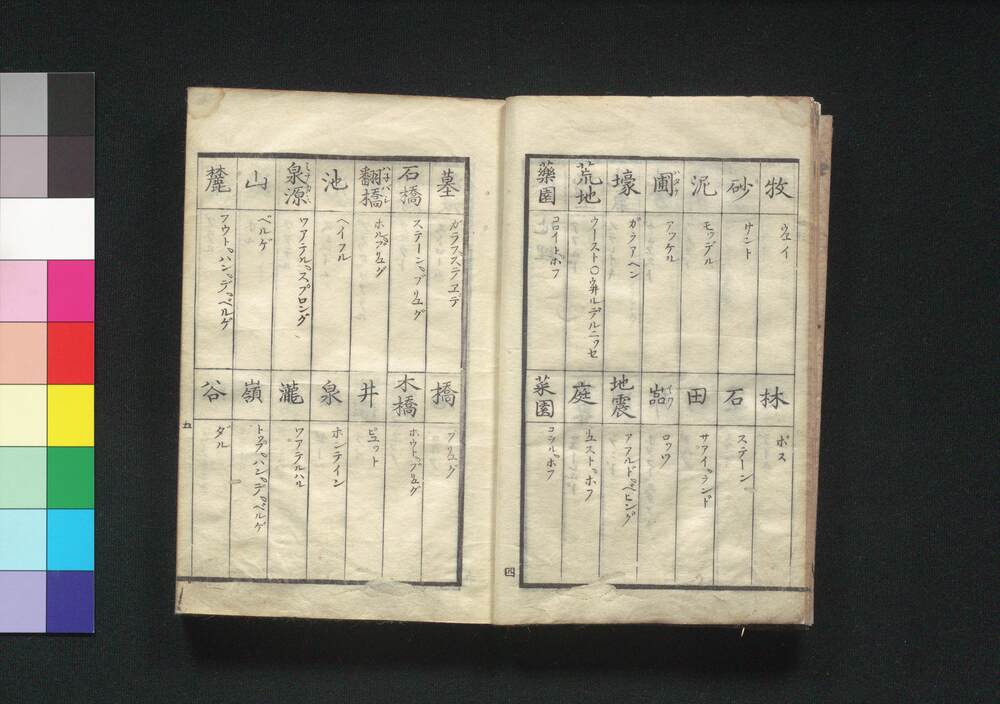 牧 ウエイ
砂 サント
泥 モッデル
圃 アツケル
壕 ガラアヘン
荒地 ウースト〇ウ井ルデルニッセ
藥園 コロイトホフ
林 ボス
石 ステーン
田 サアイランド
嵓 ロッツ
地震 アアルドベヒング
庭 リュストホフ
菜園 コシルホフ
四
墓 ガラフステヱデ
石橋 ステーンブリュグ
翻橋 ホルブリュグ
池 ヘイフル
泉源 ワアテルスプロング
山 ベルゲ
麓 フウトハンデベルゲ
橋 ブリュグ
木橋 ホウトブリュグ
井 ピュット
泉 ホンテイン
瀧 ワアテルハル
嶺 トップハンデベルゲ
谷 ダル
五